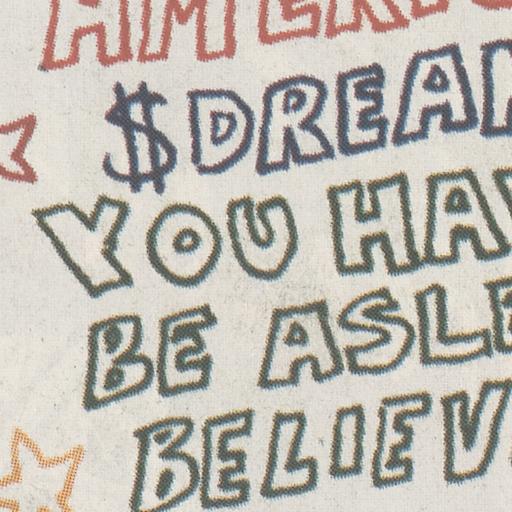 AMERIC
$DREAM
YOU HAV
BE ASLE
BELIEV